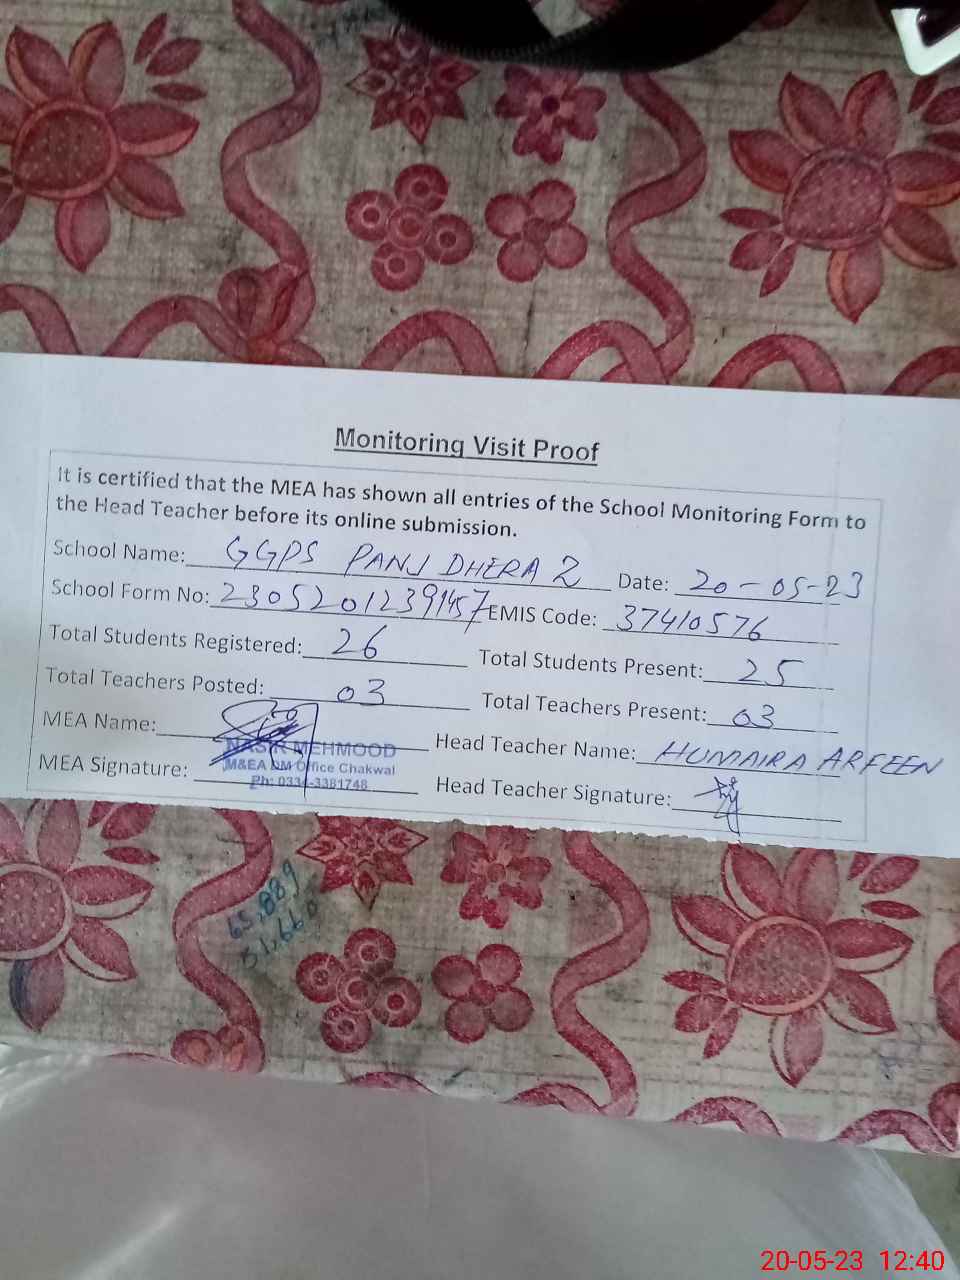 Monitoring Visit Proof
It is certified that the MEA has shown all entries of the School Monitoring Form to
the Head Teacher before its online submission.
School Name: GGPS PANJ DHERA 2 Date: 20-05-23
School Form No: EMIS Code: 37410576
Total Students Registered: 26 Total Students Present: 25
Total Teachers Posted: 03 Total Teachers Present: 03
MEA Name: Head Teacher Name: HUMAIRA ARFEEN
NASIR MEHMOOD
M&EA DM Office Chakwal
Ph: 0334-3381748
MEA Signature: Head Teacher Signature:
65,889
51,660
20-05-23 12:40